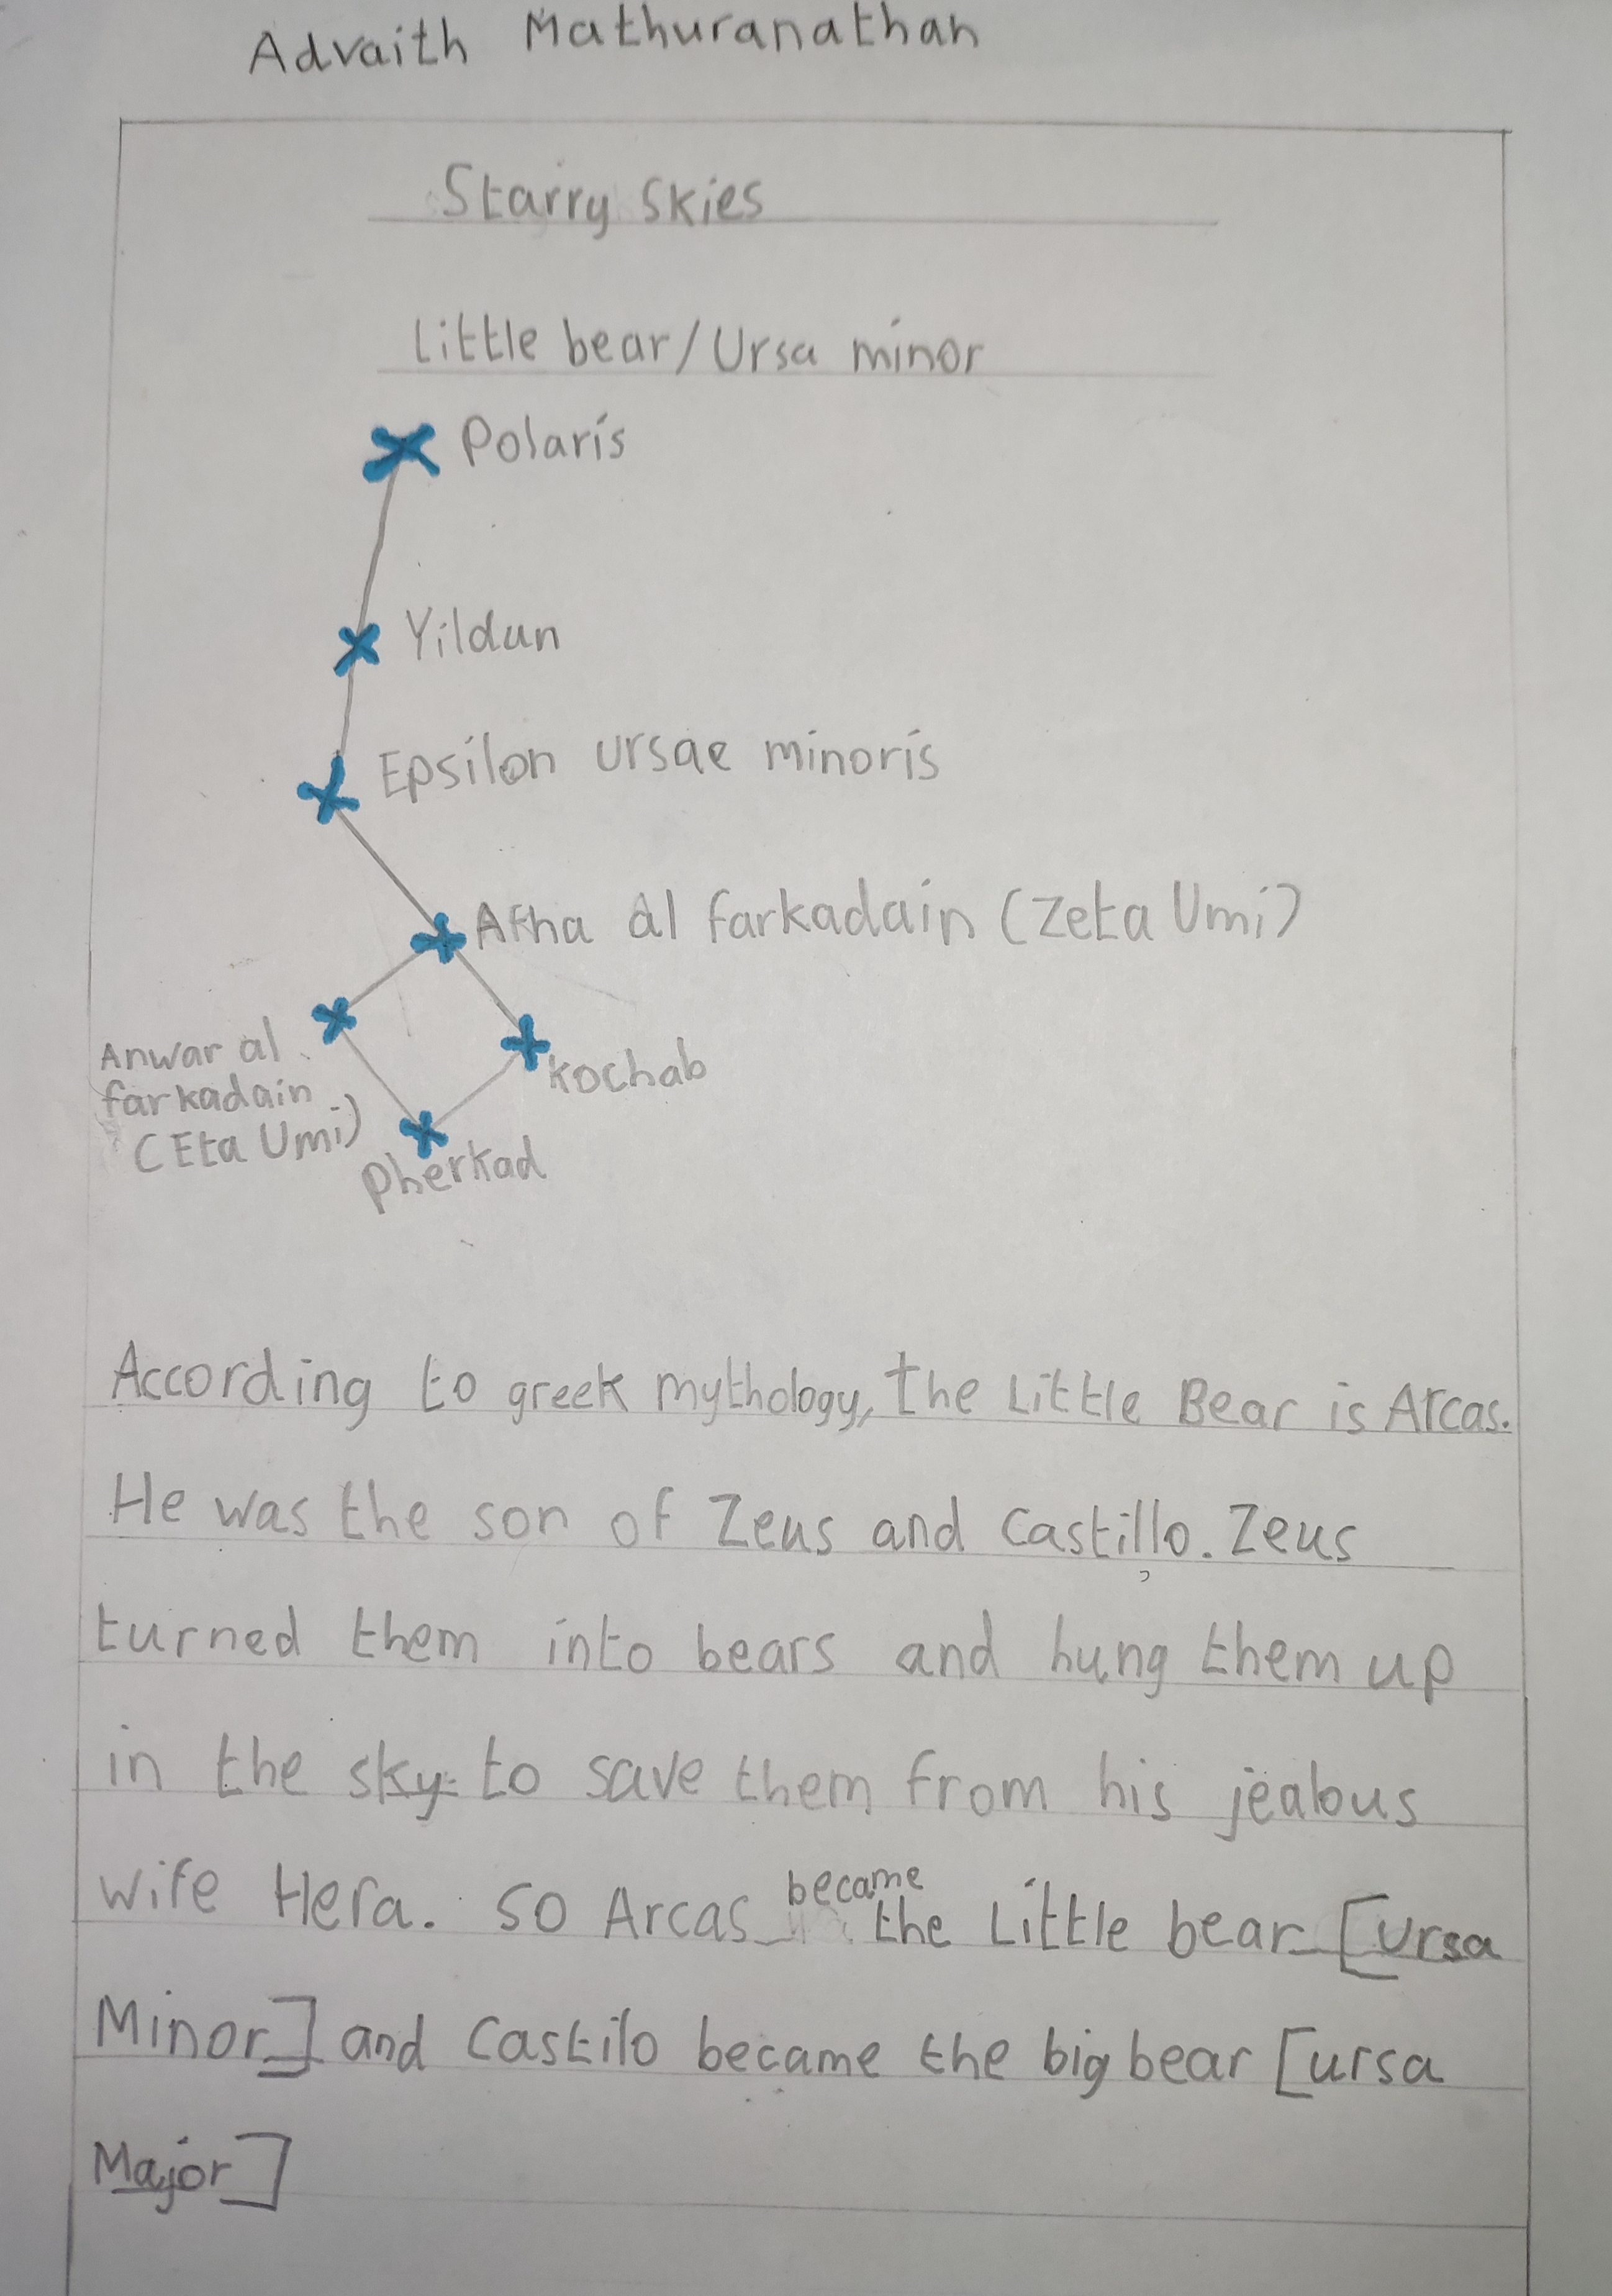 Advaith Mathuranathan
Starry Skies
Little bear/Ursa minor
Polaris
Yildun
Epsilon ursae minoris
Afha al farkadain (Zeta Umi)
Anwar al
farkadain
(Eta Umi)
kochab
pherkad
According to greek mythology, the Little Bear is Arcas.
He was the son of Zeus and Castillo. Zeus
turned them into bears and hung them up
in the sky to save them from his jealous
wife Hera. So Arcas became the Little bear [ursa
Minor] and Castilo became the big bear [ursa
Major]